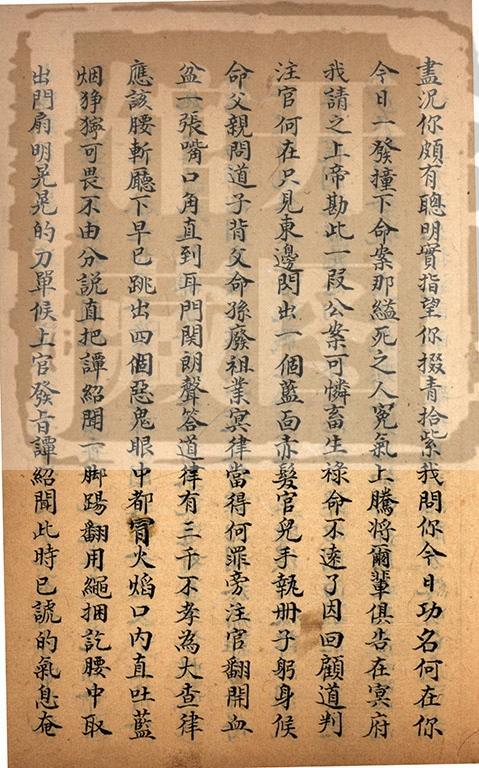 盡況你頗有聰明實指望你掇青拾紫我問你今日功名何在你
今日一發撞下命案那縊死之人冤氣上騰將爾輩俱告在冥府
我請之上帝勘此一叚公案可憐畜生祿命不遠了因回顧道判
注官何在只見東邊閃出一個藍面赤髮官兒手執册子躬身候
命父親問道子背父命孫廢祖業冥律當得何罪旁注官翻開血
盆一張嘴口角直到耳門関朗聲答道律有三千不孝為大查律
應該腰斬廳下早已跳出四個惡鬼眼中都冐火焰口內直吐藍
烟猙獰可畏不由分説直把譚紹聞一脚踢翻用繩捆訖腰中取
出門扇明晃晃的刀單候上官發旨譚紹聞此時已諕的氣息奄